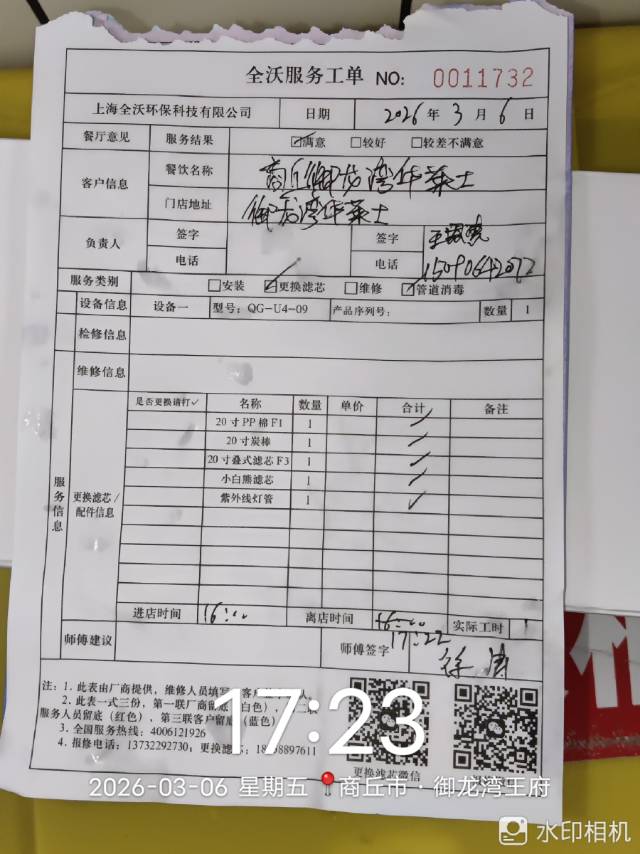 全沃服务工单 NO: 0011732
上海全沃环保科技有限公司 日期 2026年3月6日
餐厅意见 服务结果 ☑满意 □较好 □较差不满意
客户信息 餐饮名称 商丘御龙湾华莱士
门店地址 御龙湾华莱士
负责人 签字 签字
电话 电话 15090642072
服务类别 □安装 ☑更换滤芯 □维修 ☑管道消毒
设备信息 设备一 型号: QG-U4-09 产品序列号: 数量 1
检修信息
维修信息
服务信息
更换滤芯/配件信息
是否更换请打✓ 名称 数量 单价 合计 备注
20寸PP棉F1 1 ✓
20寸炭棒 1 ✓
20寸叠式滤芯F3 1 ✓
小白熊滤芯 1 ✓
紫外线灯管 1 ✓
进店时间 16:00 离店时间 16:00 实际工时 1
17:22
师傅建议 师傅签字
注: 1. 此表由厂商提供, 维修人员填写
2. 此表一式三份, 第一联厂商留底(白色),
服务人员留底(红色), 第三联客户留底(蓝色)
3. 全国服务热线: 4006121926
4. 报修电话: 13732292730; 更换滤芯:
更换滤芯微信
17:23
2026-03-06 星期五 商丘市·御龙湾王府
水印相机